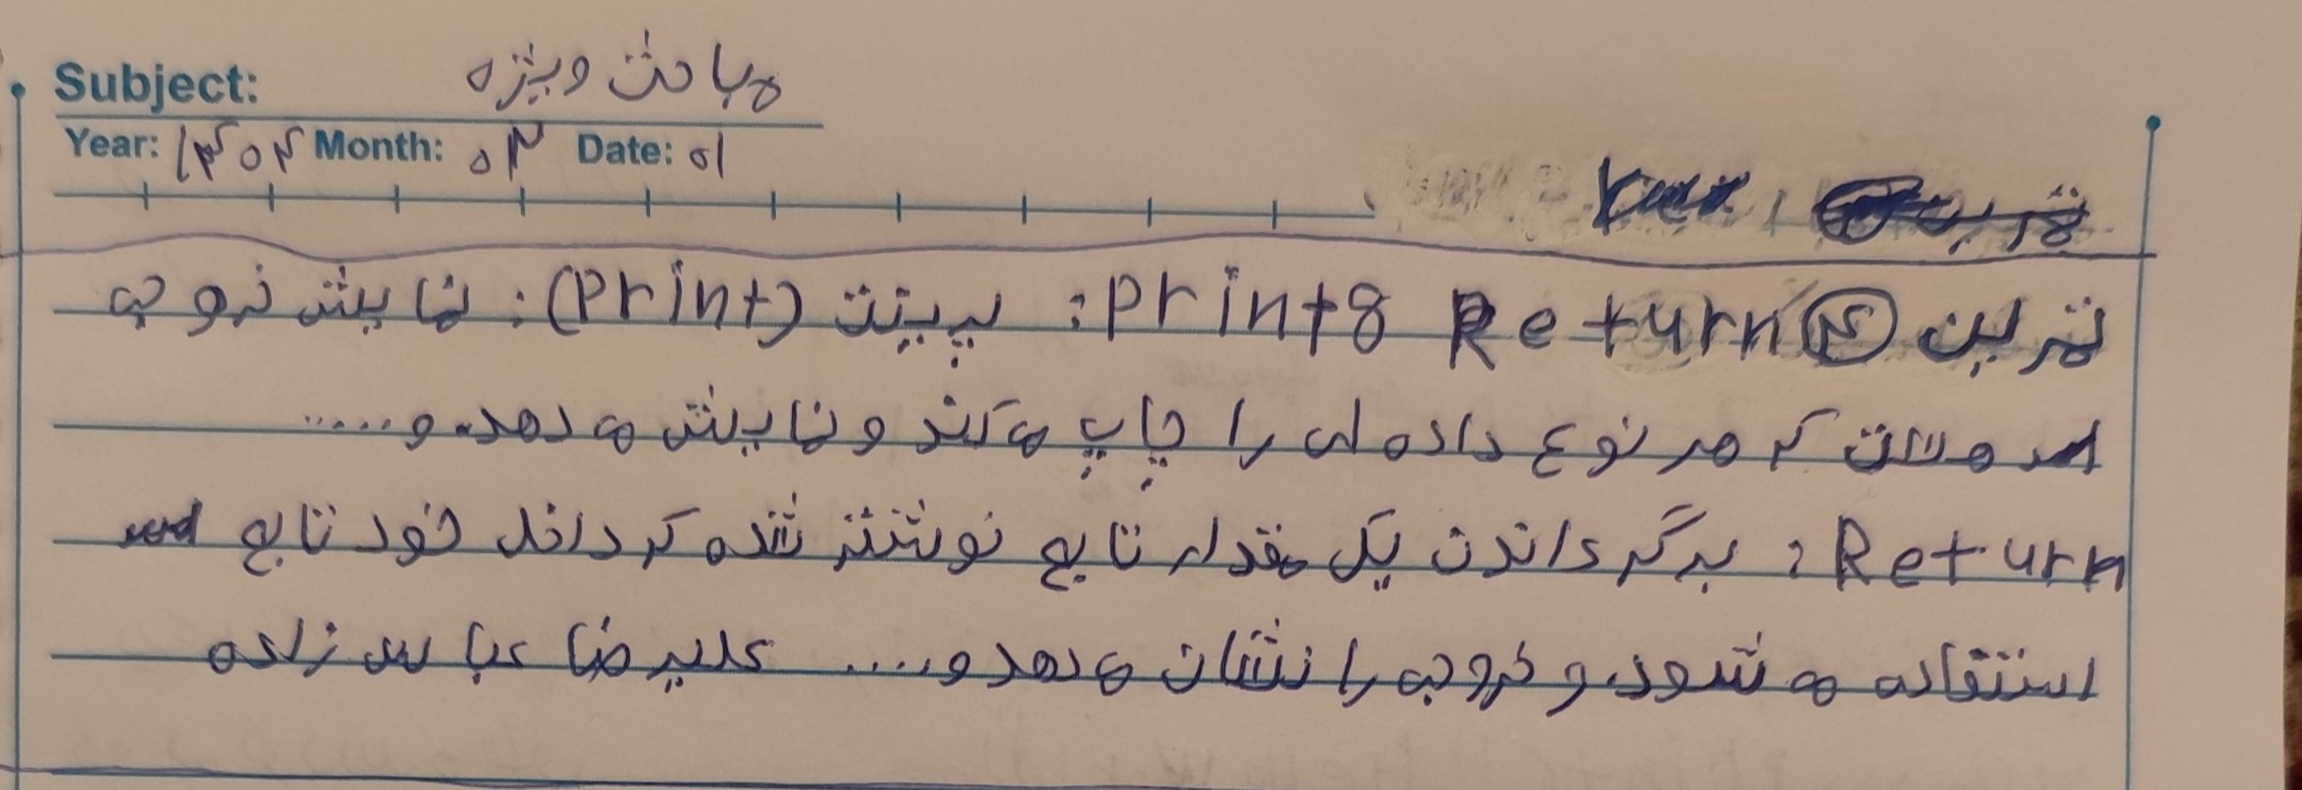 Subject: مباحث ویژه
Year: ۱۴۰۴ Month: ۰۳ Date: ۰۱
تمرین ④ print & Return: پرینت (Print): نمایش خروجی
است که هر نوع داده ای را چاپ می کند و نمایش می دهد و.....
Return: برگرداندن یک مقدار تابع نوشته شده که داخل خود تابع
استفاده می شود و خروجی را نشان می دهد و.... علیرضا عباس زاده